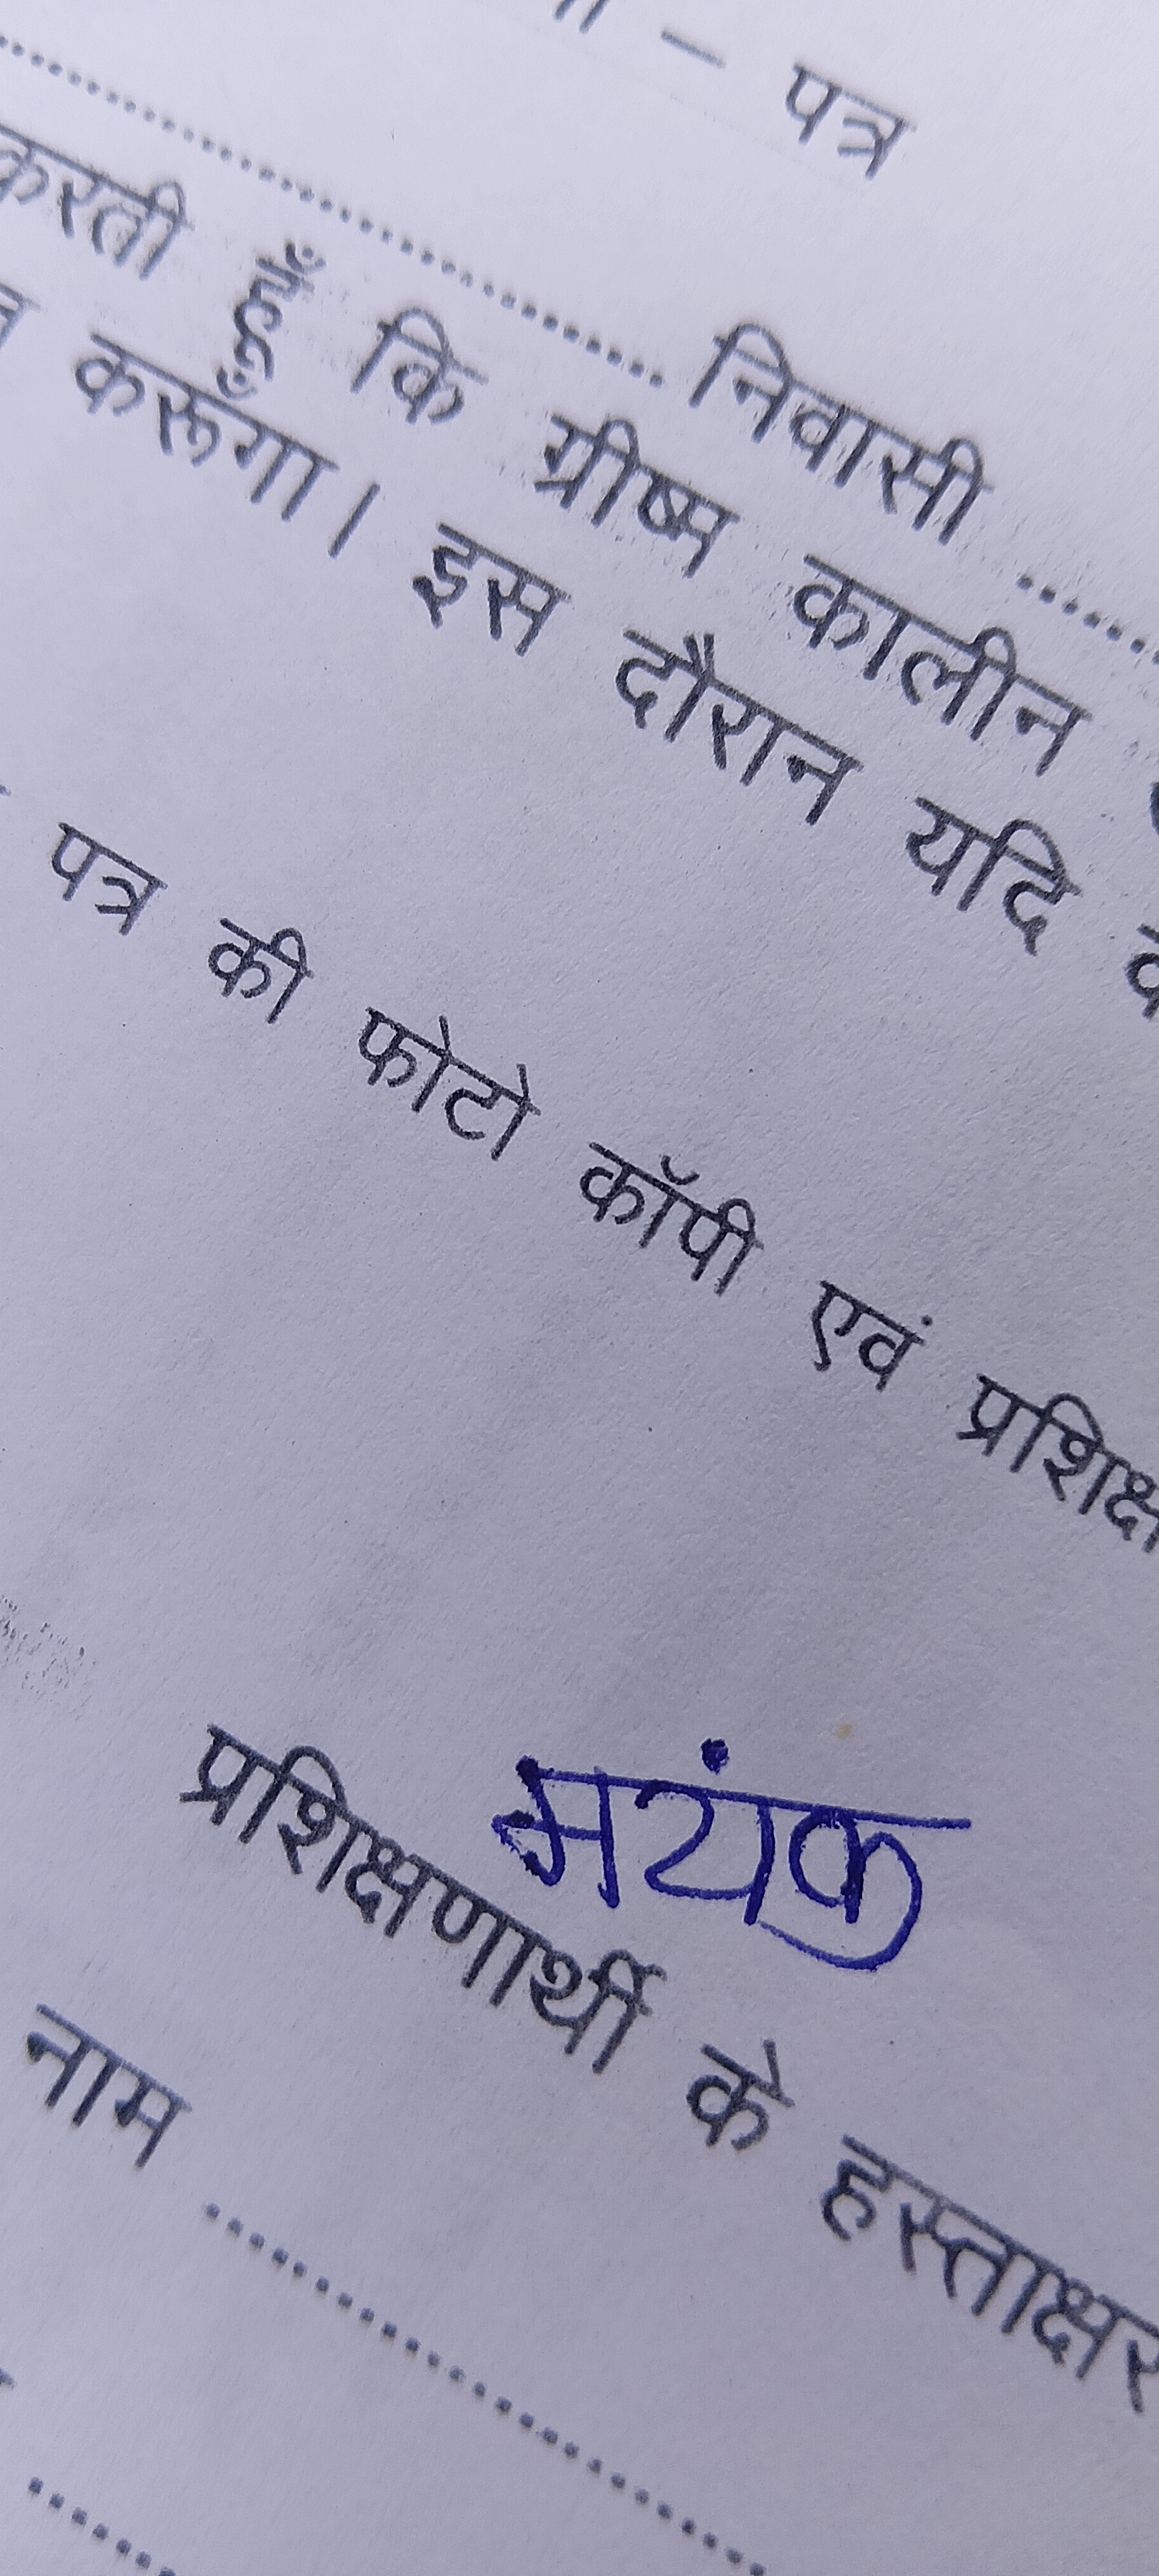 – पत्र
.......................... निवासी ......
करती हूँ कि ग्रीष्म कालीन
करूँगा। इस दौरान यदि
पत्र की फोटो कॉपी एवं
मयंक
प्रशिक्षणार्थी के हस्ताक्षर
नाम ..........................